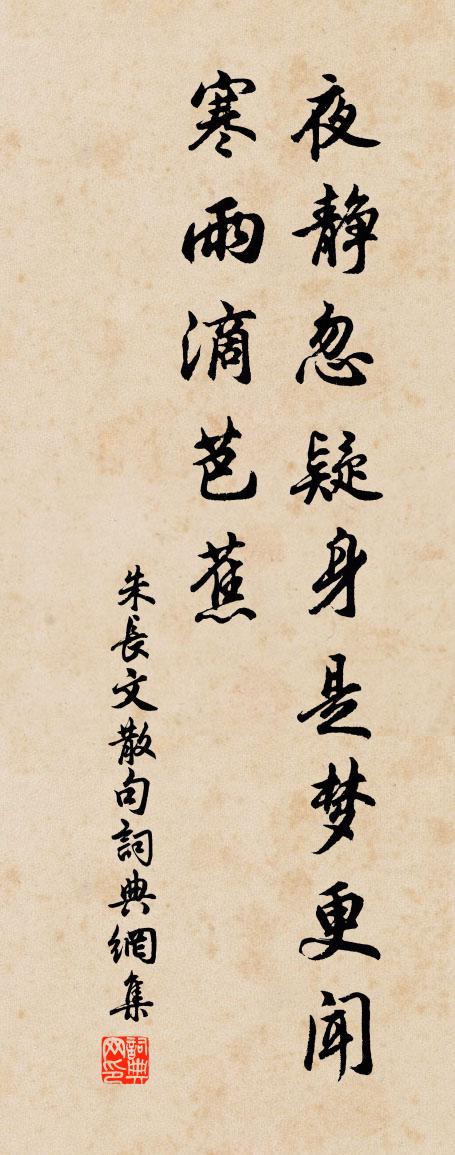 夜静忽疑身是梦更闻
寒雨滴芭蕉
朱長文散句詞典網集
詞典
网印